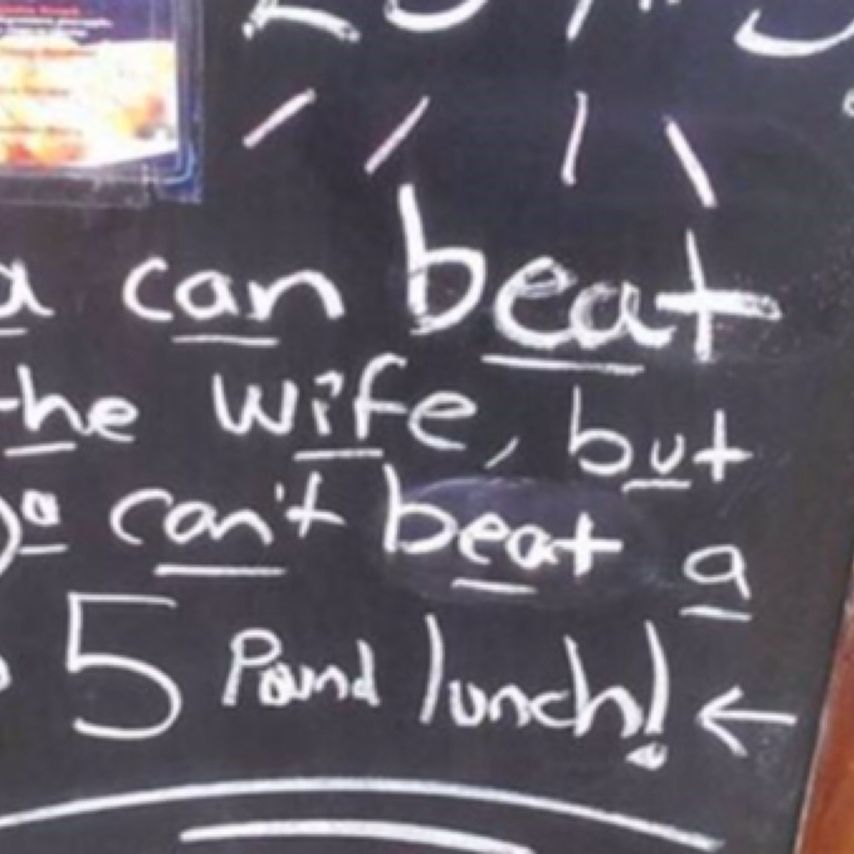 a can beat
the wife, but
a can't beat a
5 Pound lunch! ←